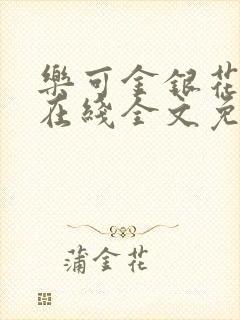 樂可金銀花
在綫全文免
蒲金花